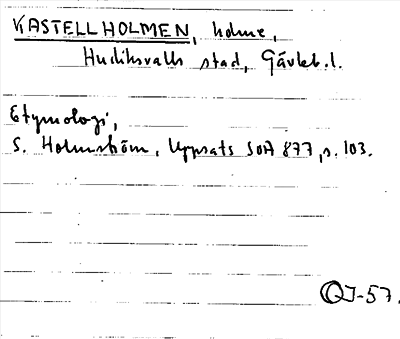 KASTELLHOLMEN, holme,
Hudiksvalls stad, Gävleb. l.
Etymologi,
S. Holmström, Uppsats SOA 877, s. 103.
OJ-57.